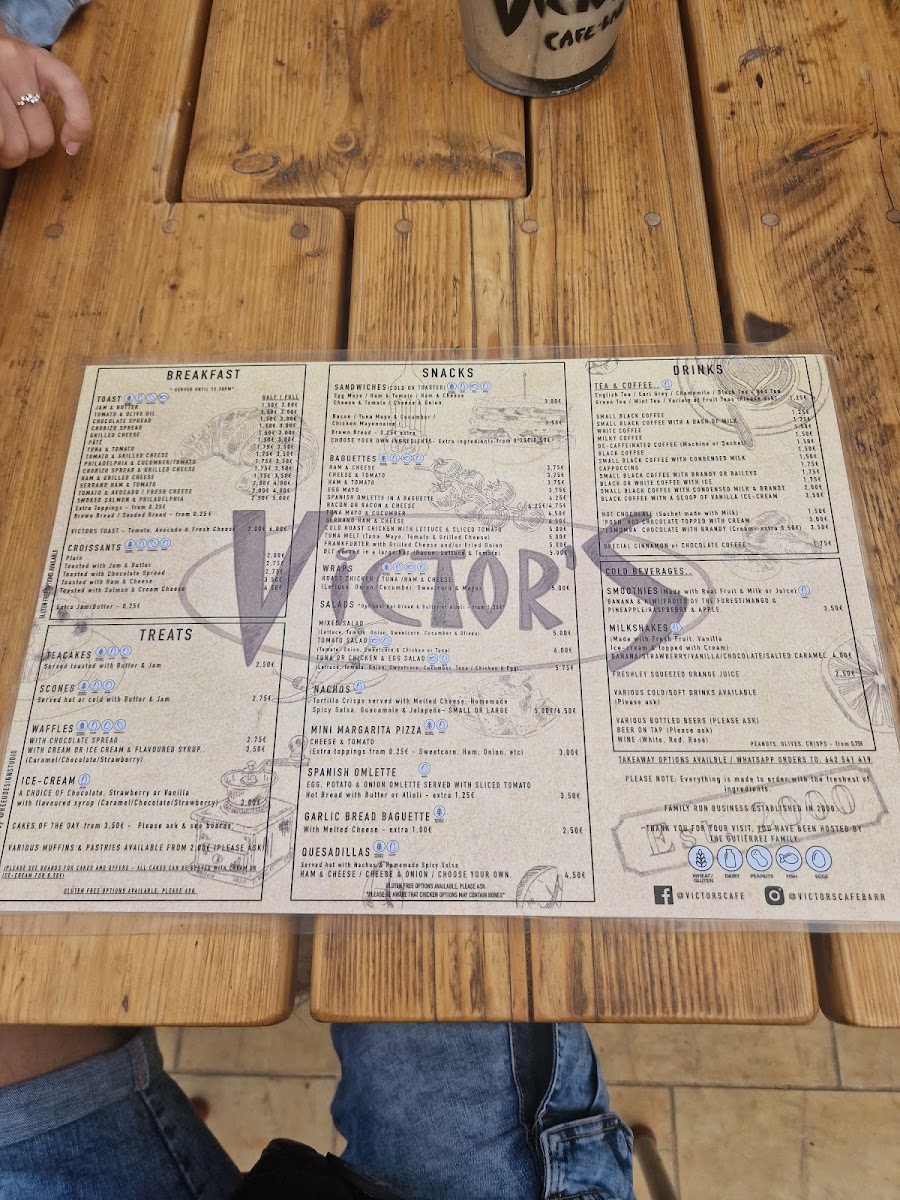 VICTOR'S
CAFE-BAR
BREAKFAST
* SERVED UNTIL 12.30PM*
TOAST
HALF | FULL
JAM & BUTTER 1,50€ 3,00€
TOMATO & OLIVE OIL 1,50€ 3,00€
CHOCOLATE SPREAD 1,50€ 3,00€
CHORIZO SPREAD 1,50€ 3,00€
GRILLED CHEESE 1,50€ 3,00€
PATE 1,50€ 3,00€
TUNA & TOMATO 1,75€ 3,50€
TOMATO & GRILLED CHEESE
PHILADELPHIA & CUCUMBER/TOMATO 1,75€ 3,50€
CHORIZO SPREAD & GRILLED CHEESE 1,75€ 3,50€
HAM & GRILLED CHEESE 1,75€ 3,50€
SERRANO HAM & TOMATO 2,00€ 4,00€
TOMATO & AVOCADO / FRESH CHEESE 2,00€ 4,00€
SMOKED SALMON & PHILADELPHIA 2,50€ 5,00€
Extra Toppings - from 0,25€
Brown Bread / Seeded Bread - from 0,25€
VICTORS TOAST - Tomato, Avocado & Fresh Cheese
CROISSANTS
Plain 2,00€
Toasted with Jam & Butter 2,75€
Toasted with Chocolate Spread 2,75€
Toasted with Ham & Cheese 3,50€
Toasted with Salmon & Cream Cheese 4,50€
Extra Jam/Butter - 0,25€
GLUTEN FREE OPTIONS AVAILABLE
TREATS
TEACAKES
Served toasted with Butter & Jam 2,50€
SCONES
Served hot or cold with Butter & Jam 2,75€
WAFFLES
WITH CHOCOLATE SPREAD 2,75€
WITH CREAM OR ICE CREAM & FLAVOURED SYRUP.. 3,50€
(Caramel/Chocolate/Strawberry)
ICE-CREAM
A CHOICE OF Chocolate, Strawberry or Vanilla
with flavoured syrup (Caramel/Chocolate/Strawberry) 3,00€
CAKES OF THE DAY from 3,50€ - Please ask & see boards
VARIOUS MUFFINS & PASTRIES AVAILABLE FROM 2,00€ (PLEASE ASK)
(PLEASE SEE BOARDS FOR CAKES AND OFFERS - ALL CAKES CAN BE SERVED WITH CREAM OR
ICE-CREAM FOR 0,50€)
GLUTEN FREE OPTIONS AVAILABLE, PLEASE ASK.
@BEEUDESIGNSTUDIO
SNACKS
SANDWICHES (COLD OR TOASTED)
Egg Mayo / Ham & Tomato / Ham & Cheese
Cheese & Tomato / Cheese & Onion. 3,00€
Bacon / Tuna Mayo & Cucumber /
Chicken Mayonnaise / 3,50€
Brown Bread - 0,25€ extra
CHOOSE YOUR OWN INGREDIENTS - Extra ingredients from 0,25€/0,50€
BAGUETTES
HAM & CHEESE 3,75€
CHEESE & TOMATO 3,75€
HAM & TOMATO 3,75€
EGG MAYO 3,75€
SPANISH OMLETTE IN A BAGUETTE 4,25€
BACON OR BACON & CHEESE 4,25€/4,75€
TUNA MAYO & CUCUMBER 4,50€
SERRANO HAM & CHEESE
COLD ROAST CHICKEN WITH LETTUCE & SLICED TOMATO 5,00€
TUNA MELT (Tuna, Mayo, Tomato & Grilled Cheese) 5,00€
FRANKFURTER with Grilled Cheese and/or Fried Onion 5,00€
BLT served in a large bap (Bacon, Lettuce & Tomato) 5,00€
WRAPS
ROAST CHICKEN / TUNA / HAM & CHEESE
(Lettuce, Onion, Cucumber, Sweetcorn & Mayo) 5,00€
SALADS
MIXED SALAD
(Lettuce, Tomato, Onion, Sweetcorn, Cucumber & Olives) 5,00€
TOMATO SALAD
(Tomato, Onion, Sweetcorn & Cucumber or Tuna) 6,00€
TUNA OR CHICKEN & EGG SALAD
(Lettuce, Tomato, Onion, Sweetcorn, Cucumber, Tuna / Chicken & Egg) 5,75€
NACHOS
Tortilla Crisps served with Melted Cheese, Homemade
Spicy Salsa, Guacamole & Jalapeño- SMALL OR LARGE 5,00€/6,50€
MINI MARGARITA PIZZA
CHEESE & TOMATO
(Extra toppings from 0,25€ - Sweetcorn, Ham, Onion, etc) 3,00€
SPANISH OMLETTE
EGG, POTATO & ONION OMLETTE SERVED WITH SLICED TOMATO
Hot Bread with Butter or Alioli - extra 1.25€ 3,50€
GARLIC BREAD BAGUETTE
With Melted Cheese - extra 1,00€ 2,50€
QUESADILLAS
Served hot with Nachos & Homemade Spicy Salsa
HAM & CHEESE / CHEESE & ONION / CHOOSE YOUR OWN. 4,50€
GLUTEN FREE OPTIONS AVAILABLE, PLEASE ASK.
*PLEASE BE AWARE THAT CHICKEN OPTIONS MAY CONTAIN BONES*
DRINKS
TEA & COFFEE..
English Tea / Earl Grey / Chamomile / Black Tea / Red Tea
Green Tea / Mint Tea / Variety of Fruit Teas (Please ask) 1,25€
SMALL BLACK COFFEE 1,25€
SMALL BLACK COFFEE WITH A DASH OF MILK
WHITE COFFEE
MILKY COFFEE
DE-CAFFEINATED COFFEE (Machine or Sachet)
BLACK COFFEE
SMALL BLACK COFFEE WITH CONDENSED MILK
CAPPUCCINO
SMALL BLACK COFFEE WITH BRANDY OR BAILEYS
BLACK OR WHITE COFFEE WITH ICE
SMALL BLACK COFFEE WITH CONDENSED MILK & BRANDY
BLACK COFFEE WITH A SCOOP OF VANILLA ICE-CREAM 2,50€
HOT CHOCOLATE (Sachet made with Milk) 1,50€
'POSH' HOT CHOCOLATE TOPPED WITH CREAM 3,00€
'LUMUMBA' CHOCOLATE WITH BRANDY (Cream- extra 0,50€)
SPECIAL CINNAMON or CHOCOLATE COFFEE 1,75€
COLD BEVERAGES..
SMOOTHIES (Made with Real Fruit & Milk or Juice)
BANANA & KIWI/FRUIT OF THE FOREST/MANGO &
PINEAPPLE/RASPBERRY & APPLE. 3,50€
MILKSHAKES
(Made with Fresh Fruit, Vanilla
Ice-cream & topped with Cream)
BANANA/STRAWBERRY/VANILLA/CHOCOLATE/SALTED CARAMEL 4,00€
FRESHLEY SQUEEZED ORANGE JUICE 2,50€
VARIOUS COLD/SOFT DRINKS AVAILABLE
(Please ask)
VARIOUS BOTTLED BEERS (PLEASE ASK)
BEER ON TAP (Please ask)
WINE (White, Red, Rosé).
PEANUTS, OLIVES, CRISPS - from 0,75€
TAKEAWAY OPTIONS AVAILBLE / WHATSAPP ORDERS TO. 642 541 419
PLEASE NOTE: Everything is made to order with the freshest of
ingredients.
FAMILY RUN BUSINESS ESTABLISHED IN 2000.
THANK YOU FOR YOUR VISIT, YOU HAVE BEEN HOSTED BY
THE GUTIÉRREZ FAMILY.
Est. 2000
WHEAT/
GLUTEN
DAIRY
PEANUTS
FISH
EGGS
@VICTORSCAFE
@VICTORSCAFEBARR
VICTOR'S